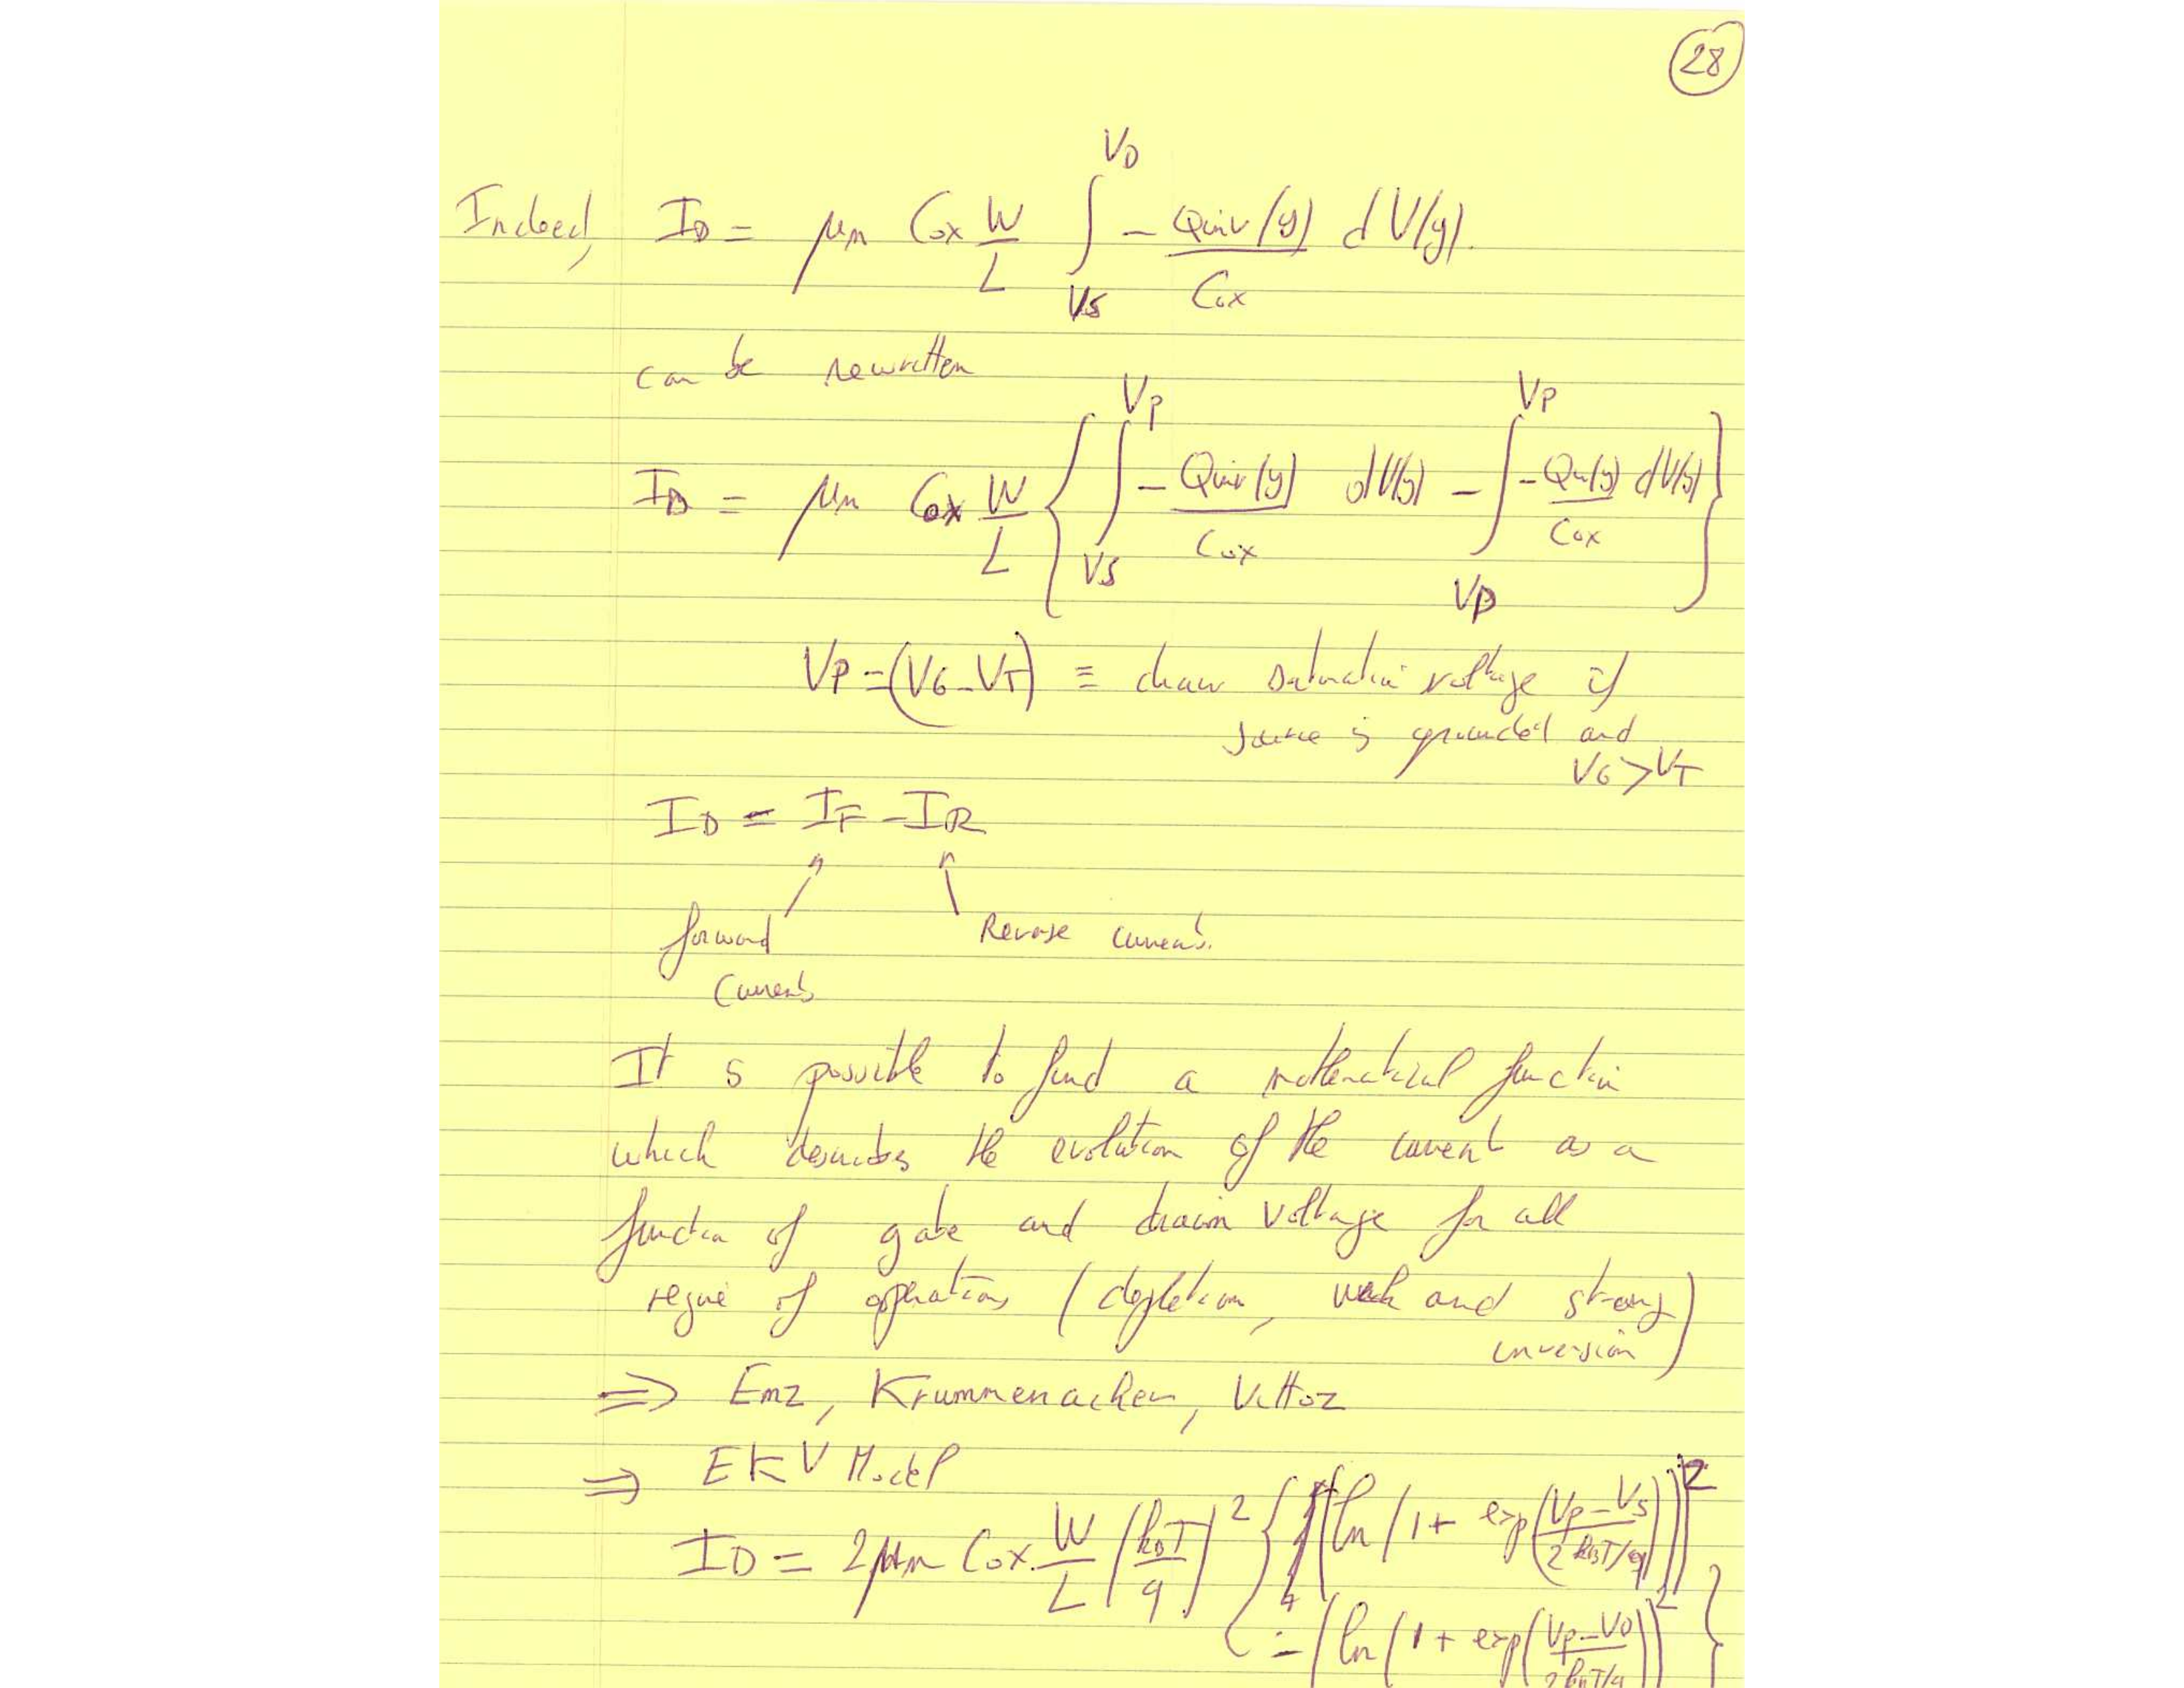 28
Indeed, I_D = μn Cox W/L ∫_{VS}^{VD} - Qinv(y)/Cox dV(y).
can be rewritten
I_D = μn Cox W/L { ∫_{VS}^{VP} - Qinv(y)/Cox dV(y) - ∫_{VD}^{VP} - Qn(y)/Cox dV(y) }
VP = (VG - VT) ≡ drain saturation voltage if
source is grounded and
VG > VT
I_D = I_F - I_R
forward Reverse current.
current
It is possible to find a mathematical function
which describes the evolution of the current as a
function of gate and drain voltage for all
regime of operation, (depletion, weak and strong
inversion)
⇒ Enz, Krummenacher, Vittoz
⇒ EKV Model
I_D = 2μn Cox. W/L (k_BT/q)^2 { [ln(1 + exp((Vp - VS)/(2 k_BT/q)))]^2
- (ln(1 + exp((Vp - VD)/(2 k_BT/q))))^2 }